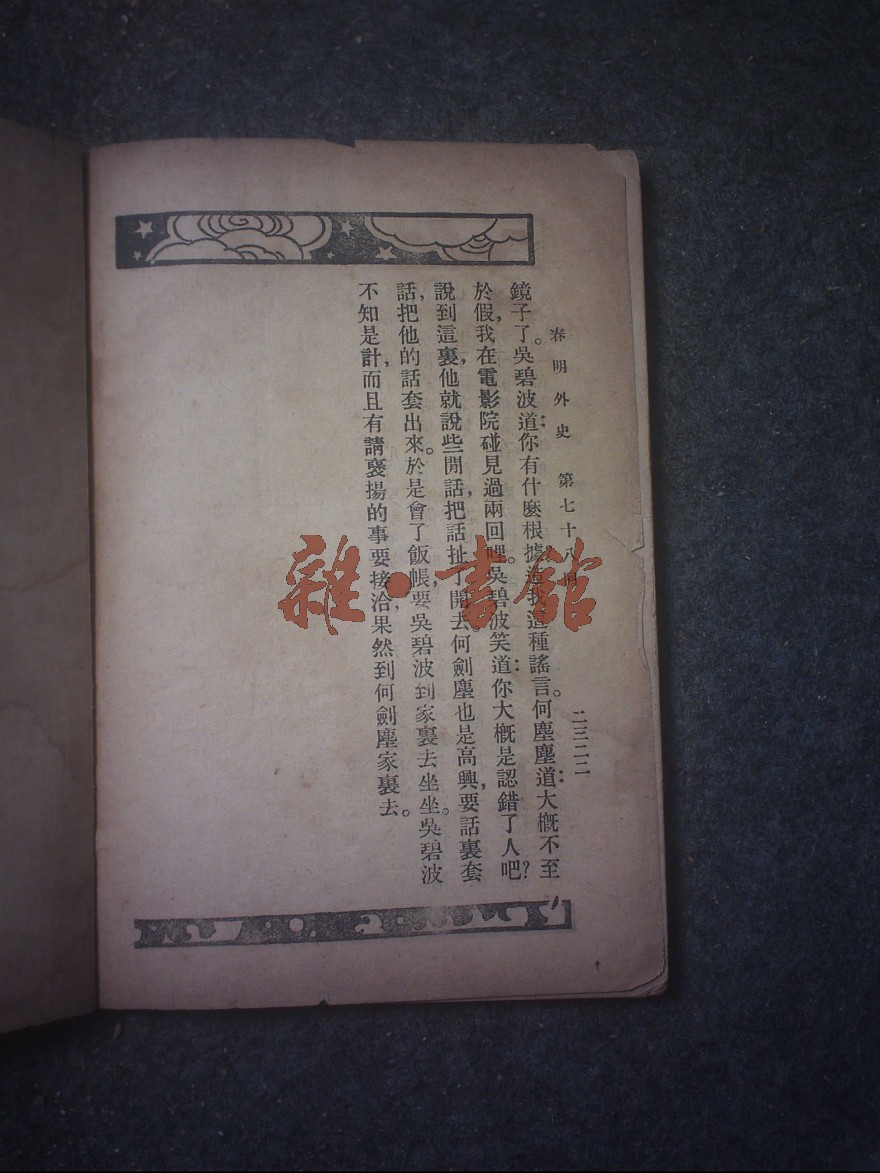 春明外史 第七十八回 二三二二
鏡子了。吳碧波道：你有什麼根據造我這種謠言。何塵塵道：大概不至
於假，我在電影院碰見過兩回哩。吳碧波笑道：你大概是認錯了人吧？
說到這裏，他就說些閒話，把話扯了開去。何劍塵也是高興，要話裏套
話，把他的話套出來。於是會了飯帳，要吳碧波到家裏去坐坐。吳碧波
不知是計，而且有請褒揚的事要接洽，果然到何劍塵家裏去。
雜·書館